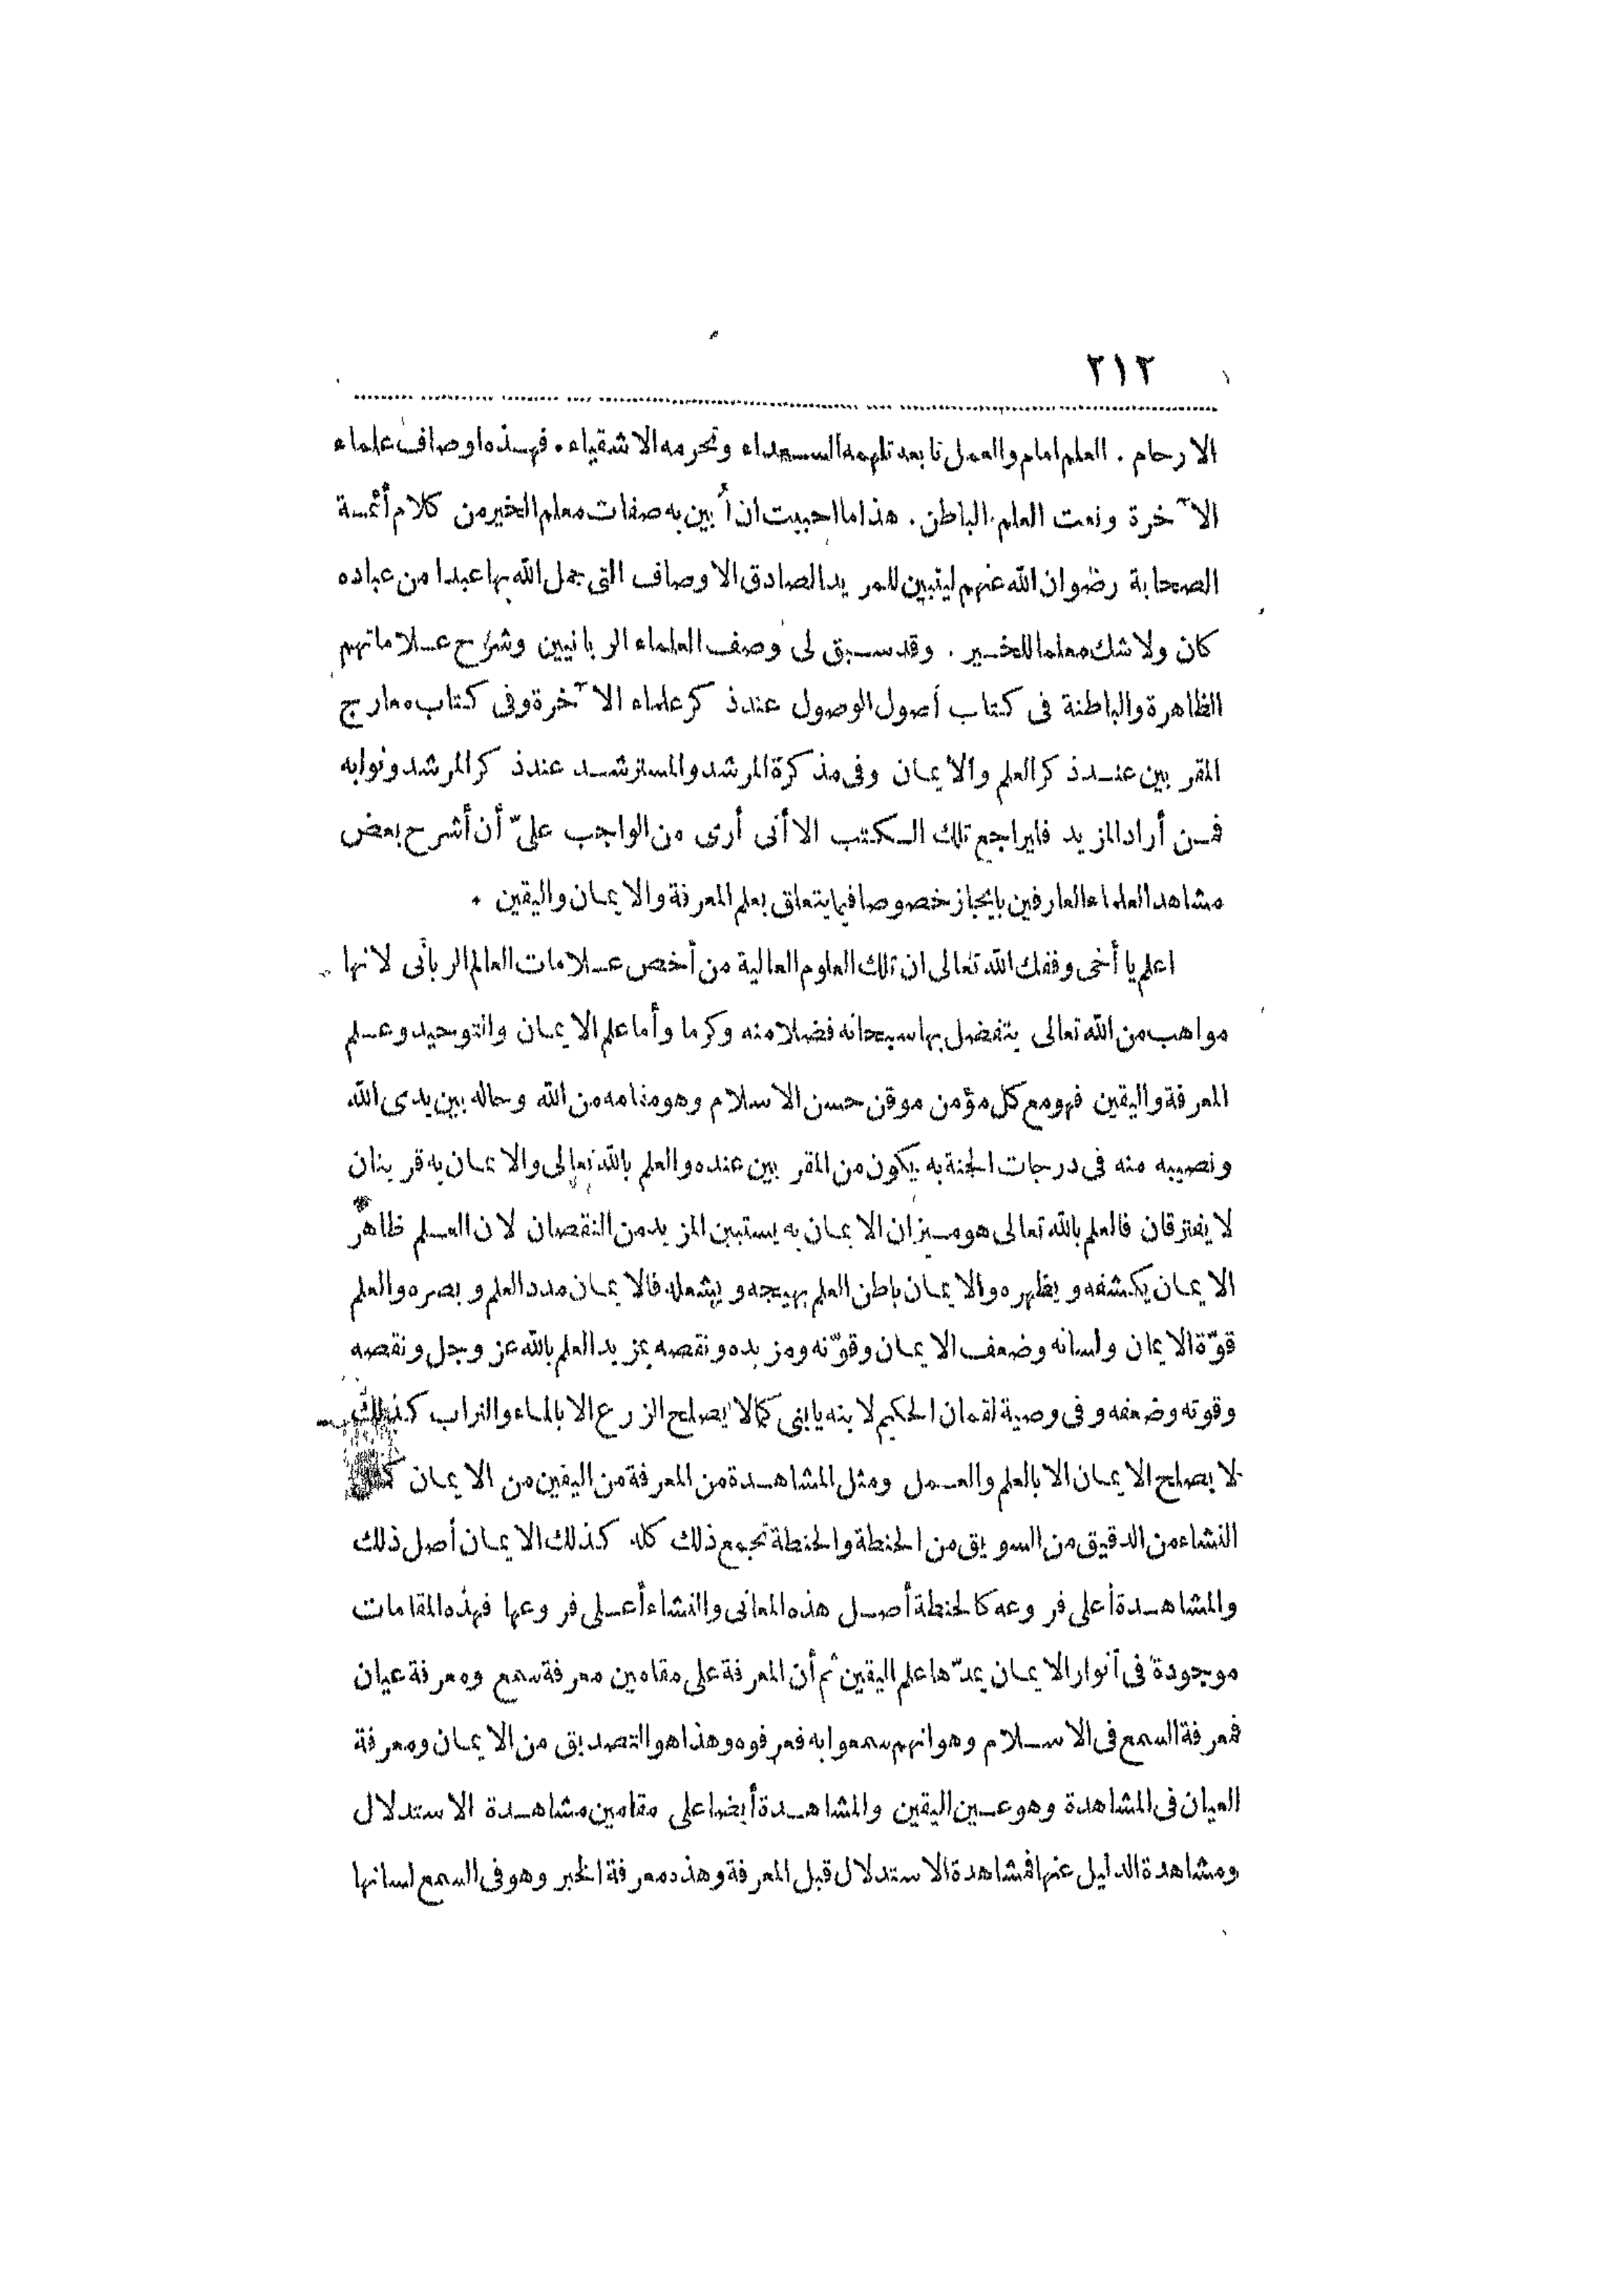 ٢١٢
الارحام . العلم امام والعمل تابعه تلهمه السعداء وتحرمه الاشقياء . فهذه اوصاف علماء
الآخرة ونعت العلم الباطن . هذا ما احببت ان أبين به صفات معلم الخير من كلام أئمة
الصحابة رضوان الله عنهم ليتبين للمريد الصادق الاوصاف التى جمل الله بها عبدا من عباده
كان ولا شك معلما للخير . وقد سبق لى وصف العلماء الربانيين وشرح علاماتهم
الظاهرة والباطنة فى كتاب أصول الوصول عند ذكر علماء الآخرة وفى كتاب معارج
المقربين عند ذكر العلم والايمان وفى مذكرة المرشد والمسترشد عند ذكر المرشد ونوابه
فمن أراد المزيد فليراجع تلك الكتب الا أنى أرى من الواجب علىّ أن أشرح بعض
مشاهد العلماء العارفين بايجاز خصوصا فيما يتعلق بعلم المعرفة والايمان واليقين .
اعلم يا أخى وفقك الله تعالى ان تلك العلوم العالية من أخص علامات العالم الربانى لانها
مواهب من الله تعالى يتفضل بها سبحانه فضلا منه وكرما وأما علم الايمان والتوحيد وعلم
المعرفة واليقين فهو مع كل مؤمن موقن حسن الاسلام وهو مقامه من الله وحاله بين يدى الله
ونصيبه منه فى درجات الجنة به يكون من المقربين عنده والعلم بالله تعالى والايمان به قرينان
لا يفترقان فالعلم بالله تعالى هو ميزان الايمان به يستبين المزيد من النقصان لان العلم ظاهر
الايمان يكشفه ويظهره والايمان باطن العلم يهيجه ويشعله فالايمان مدد العلم وبصره والعلم
قوّة الايمان ولسانه وضعف الايمان وقوّته ومزيده ونقصه بمزيد العلم بالله عز وجل ونقصه
وقوته وضعفه وفى وصية لقمان الحكيم لابنه يا بنى كما لا يصلح الزرع الا بالماء والتراب كذلك
لا يصلح الايمان الا بالعلم والعمل ومثل المشاهدة من المعرفة من اليقين من الايمان كمثل
النشاء من الدقيق من السويق من الحنطة والحنطة تجمع ذلك كله كذلك الايمان أصل ذلك
والمشاهدة أعلى فروعه كالحنطة أصل هذه المعانى والنشاء أعلى فروعها فهذه المقامات
موجودة فى أنوار الايمان يمدّها علم اليقين ثم أن المعرفة على مقامين معرفة سمع ومعرفة عيان
فمعرفة السمع فى الاسلام وهو انهم سمعوا به فعرفوه وهذا هو التصديق من الايمان ومعرفة
العيان فى المشاهدة وهو عين اليقين والمشاهدة أيضا على مقامين مشاهدة الاستدلال
ومشاهدة الدليل عنها فمشاهدة الاستدلال قبل المعرفة وهذه معرفة الخبر وهو فى السمع لسانها